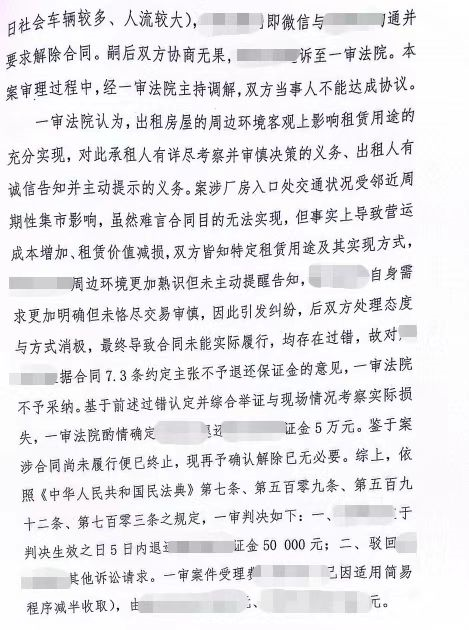 日社会车辆较多、人流较大），即微信与沟通并
要求解除合同。嗣后双方协商无果，诉至一审法院。本
案审理过程中，经一审法院主持调解，双方当事人不能达成协议。
一审法院认为，出租房屋的周边环境客观上影响租赁用途的
充分实现，对此承租人有详尽考察并审慎决策的义务、出租人有
诚信告知并主动提示的义务。案涉厂房入口处交通状况受邻近周
期性集市影响，虽然难言合同目的无法实现，但事实上导致营运
成本增加、租赁价值减损，双方皆知特定租赁用途及其实现方式，
周边环境更加熟识但未主动提醒告知，自身需
求更加明确但未恪尽交易审慎，因此引发纠纷，后双方处理态度
与方式消极，最终导致合同未能实际履行，均存在过错，故对
据合同7.3条约定主张不予退还保证金的意见，一审法院
不予采纳。基于前述过错认定并综合举证与现场情况考察实际损
失，一审法院酌情确定退还证金5万元。鉴于案
涉合同尚未履行便已终止，现再予确认解除已无必要。综上，依
照《中华人民共和国民法典》第七条、第五百零九条、第五百九
十二条、第七百零三条之规定，一审判决如下：一、于
判决生效之日5日内退证金50 000元；二、驳回
其他诉讼请求。一审案件受理费已因适用简易
程序减半收取），由元、元。